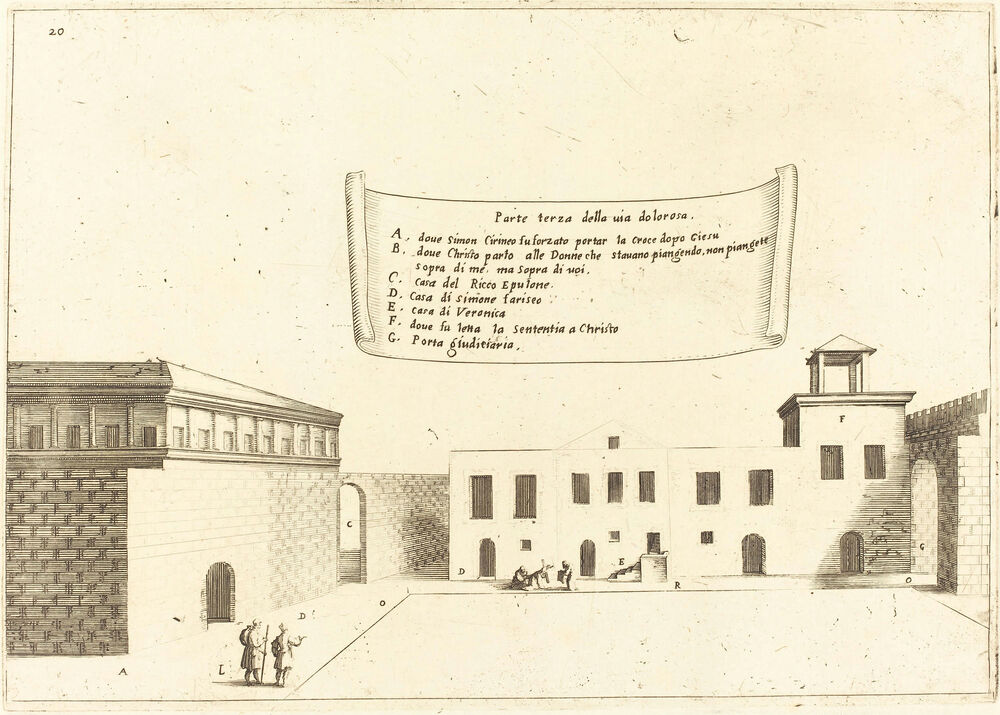 20
Parte terza della uia dolorosa.
A. doue Simon Cirineo fu forzato portar la Croce dopo Giesu
B. doue Christo parlo alle Donne che stauano piangendo, non piangete
sopra di me, ma sopra di uoi.
C. Casa del Ricco Epulone.
D. Casa di Simone fariseo
E. casa di Veronica
F. doue fu letta la Sententia a Christo
G. Porta giuditiaria.
F
C
G
D
E
R
O
O
D
A
L